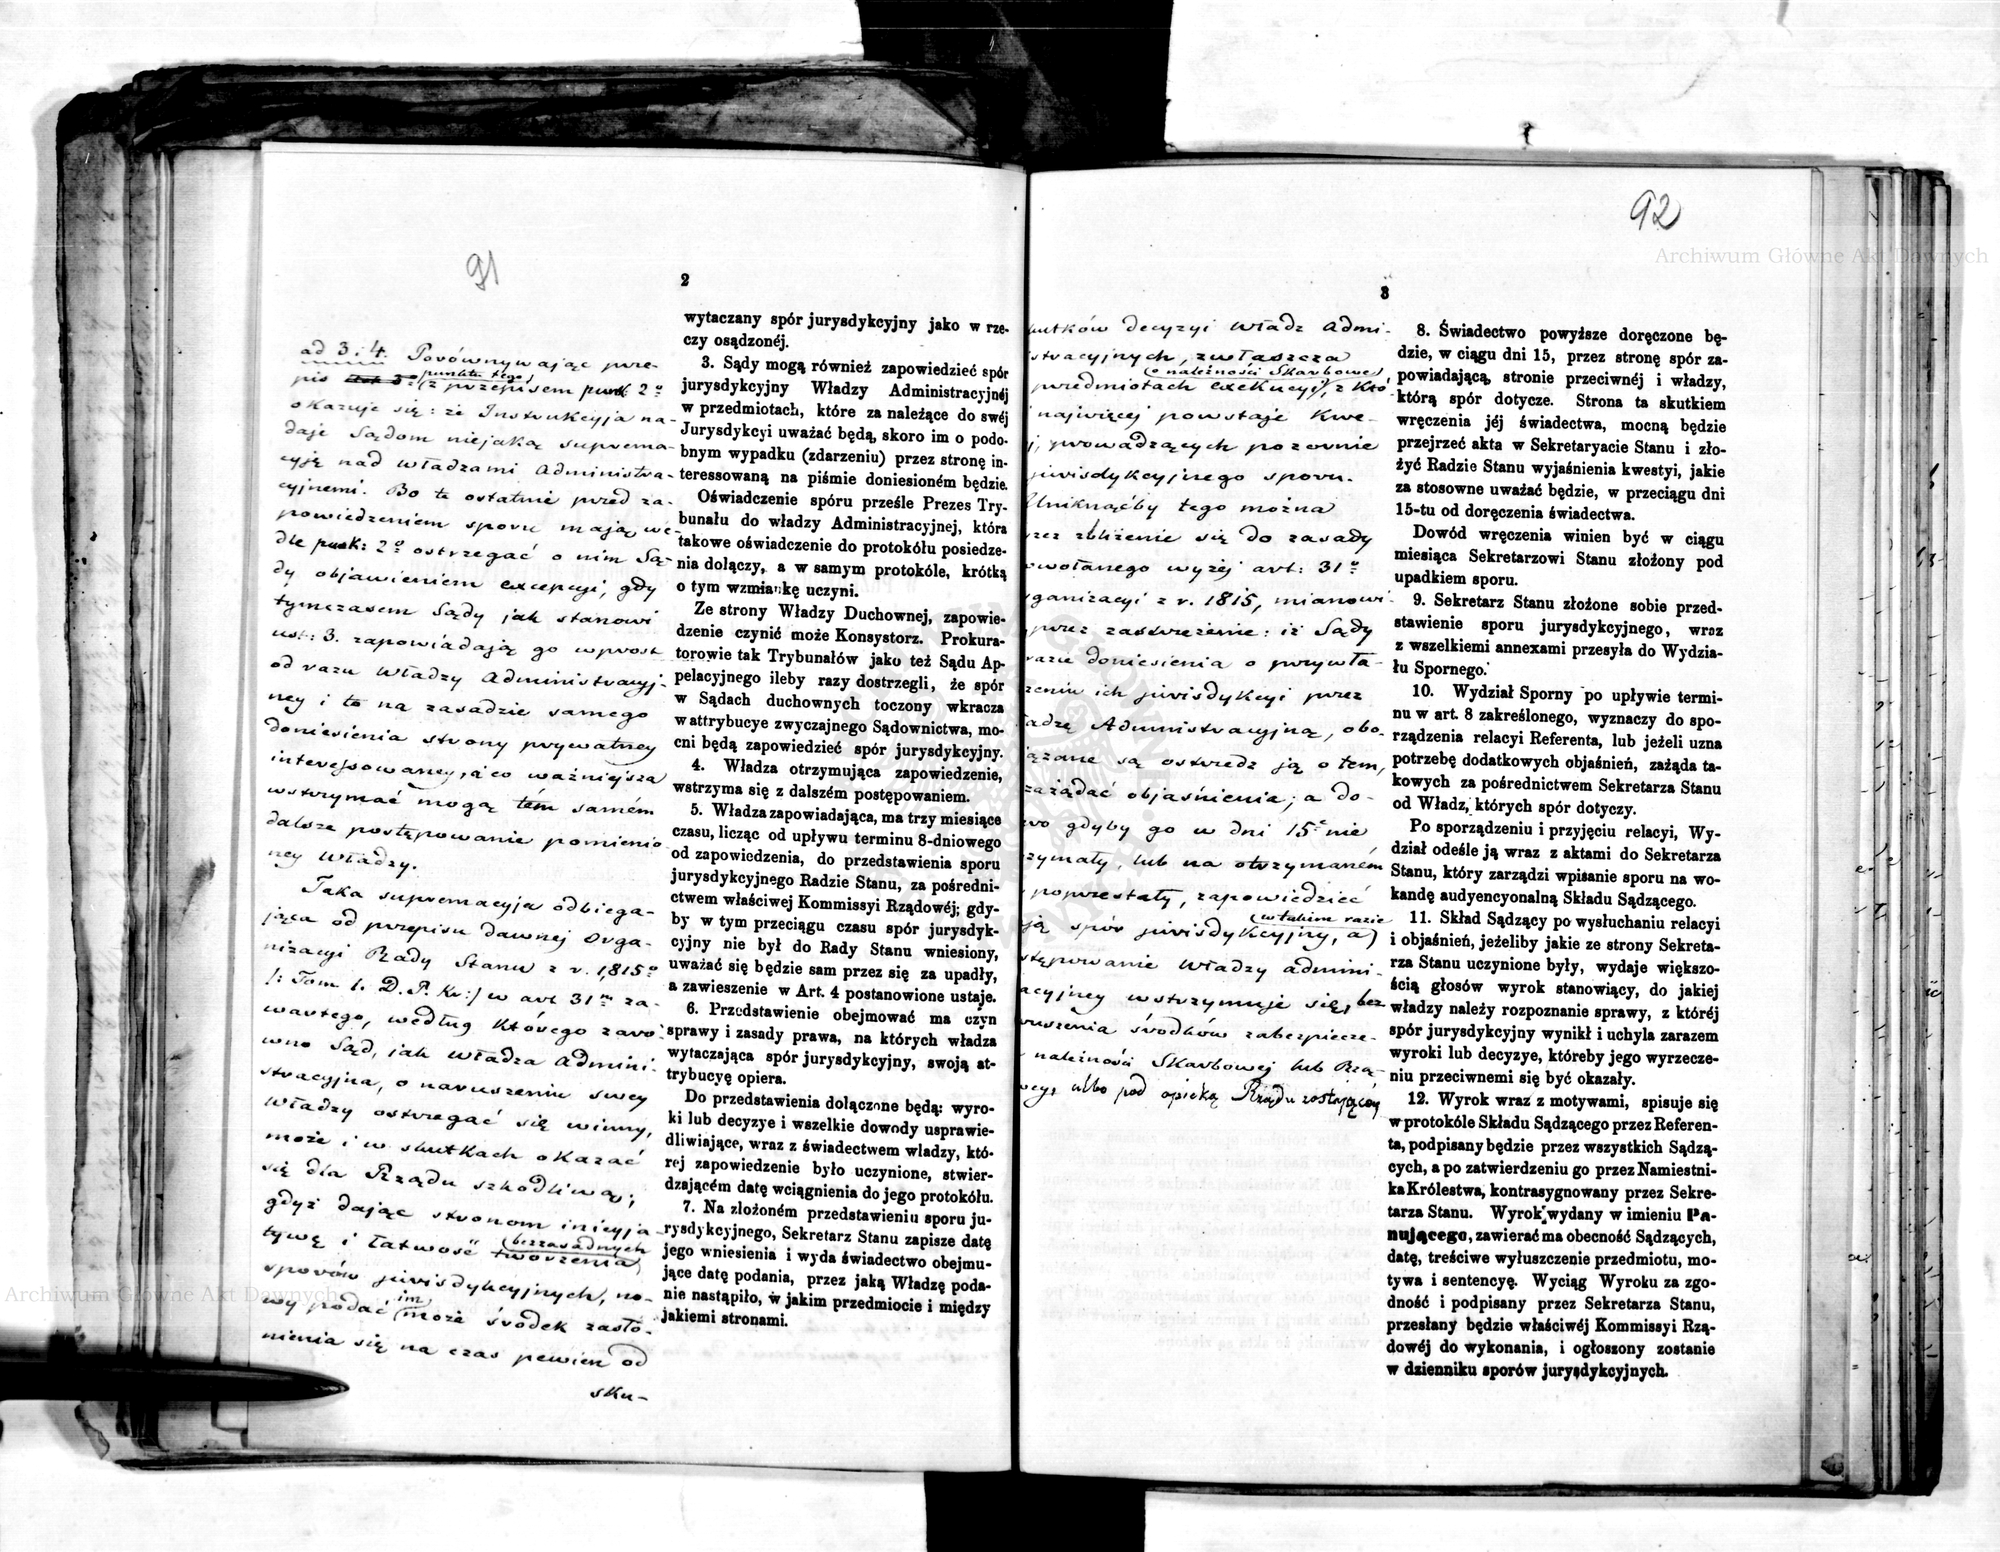 91
2
ad 3. i 4. Porównywając prze-
pis punktu tego (z przepisem punk: 2º
okazuje się: że Instrukcyja na-
daje Sądom niejaką suprema-
cyję nad władzami Administra-
cyjnemi. Bo te ostatnie przed za-
powiedzeniem sporu mają, we-
dle punk: 2º ostrzegać o nim Są-
dy objawieniem excepcyi, gdy
tymczasem Sądy jak stanowi
ust: 3. zapowiadają go wprost
od razu Władzy Administracyj-
ney i to na zasadzie samego
doniesienia strony prywatney
interessowaney, a co ważniejsza
wstrzymać mogą tém samém
dalsze postępowanie pomienio-
ney Władzy.
Taka supremacyja odbiega-
jąca od przepisu dawnej Orga-
nizacyi Rady Stanu z r. 1815º
/: Tom 1. D. P. Kr:/ w art 31m za-
wartego, według którego zaró-
wno Sąd, jak Władza Admini-
stracyjna, o naruszeniu swey
Władzy ostrzegać się winny,
może i w skutkach okazać
się dla Rządu szkodliwą;
gdyż dając stronom inicyja-
tywę i łatwość bezzasadnych tworzenia
sporów jurisdykcyjnych, no-
wy podać im może środek zasło-
nienia się na czas pewien od
sku-
wytaczany spór jurysdykcyjny jako w rze-
czy osądzonéj.
3. Sądy mogą również zapowiedzieć spór
jurysdykcyjny Władzy Administracyjnéj
w przedmiotach, które za należące do swéj
Jurysdykcyi uważać będą, skoro im o podo-
bnym wypadku (zdarzeniu) przez stronę in-
teressowaną na piśmie doniesioném będzie.
Oświadczenie spóru prześle Prezes Try-
bunału do władzy Administracyjnej, która
takowe oświadczenie do protokółu posiedze-
nia dołączy, a w samym protokóle, krótką
o tym wzmiankę uczyni.
Ze strony Władzy Duchownej, zapowie-
dzenie czynić może Konsystorz. Prokura-
torowie tak Trybunałów jako też Sądu Ap-
pelacyjnego ileby razy dostrzegli, że spór
w Sądach duchownych toczony wkracza
w attrybucye zwyczajnego Sądownictwa, mo-
cni będą zapowiedzieć spór jurysdykcyjny.
4. Władza otrzymująca zapowiedzenie,
wstrzyma się z dalszém postępowaniem.
5. Władza zapowiadająca, ma trzy miesiące
czasu, licząc od upływu terminu 8-dniowego
od zapowiedzenia, do przedstawienia sporu
jurysdykcyjnego Radzie Stanu, za pośredni-
ctwem właściwej Kommissyi Rządowéj; gdy-
by w tym przeciągu czasu spór jurysdyk-
cyjny nie był do Rady Stanu wniesiony,
uważać się będzie sam przez się za upadły,
a zawieszenie w Art. 4 postanowione ustaje.
6. Przedstawienie obejmować ma czyn
sprawy i zasady prawa, na których władza
wytaczająca spór jurysdykcyjny, swoją at-
trybucyę opiera.
Do przedstawienia dołączone będą: wyro-
ki lub decyzye i wszelkie dowody usprawie-
dliwiające, wraz z świadectwem władzy, któ-
rej zapowiedzenie było uczynione, stwier-
dzającém datę wciągnienia do jego protokółu.
7. Na złożoném przedstawieniu sporu ju-
rysdykcyjnego, Sekretarz Stanu zapisze datę
jego wniesienia i wyda świadectwo obejmu-
jące datę podania, przez jaką Władzę poda-
nie nastąpiło, w jakim przedmiocie i między
jakiemi stronami.
92
3
kutków decyzyi Władz Admi-
stracyjnych, zwłaszcza
przedmiotach exekucyi (o należności Skarbowe), z któ
najwięcej powstaje kwe-
j, prowadzących pozornie
jurisdykcyjnego sporu.
Uniknąćby tego można
rzez zbliżenie się do zasady
owołanego wyżej art: 31º
rganizacyi z r. 1815, mianowi-
przez zastrzeżenie: iż Sądy
razie doniesienia o przywła-
zeniu ich jurisdykcyi przez
ładzę Administracyjną, obo-
iązane są ostrzedz ją o tem,
zażądać objaśnienia; a do-
ero gdyby go w dni 15e nie
zymały, lub na otrzymaném
poprzestały, zapowiedzieć
ją spór jurisdykcyjny, a w takim razie
stępowanie Władzy admini-
acyjney wstrzymuje się, bez
ruszenia środków zabezpiecze-
należności Skarbowej lub Rzą-
wey, albo pod opieką Rządu zostającéj
8. Świadectwo powyższe doręczone bę-
dzie, w ciągu dni 15, przez stronę spór za-
powiadającą, stronie przeciwnéj i władzy,
którą spór dotycze. Strona ta skutkiem
wręczenia jéj świadectwa, mocną będzie
przejrzeć akta w Sekretaryacie Stanu i zło-
żyć Radzie Stanu wyjaśnienia kwestyi, jakie
za stosowne uważać będzie, w przeciągu dni
15-tu od doręczenia świadectwa.
Dowód wręczenia winien być w ciągu
miesiąca Sekretarzowi Stanu złożony pod
upadkiem sporu.
9. Sekretarz Stanu złożone sobie przed-
stawienie sporu jurysdykcyjnego, wraz
z wszelkiemi annexami przesyła do Wydzia-
łu Spornego.
10. Wydział Sporny po upływie termi-
nu w art. 8 zakreślonego, wyznaczy do spo-
rządzenia relacyi Referenta, lub jeżeli uzna
potrzebę dodatkowych objaśnień, zażąda ta-
kowych za pośrednictwem Sekretarza Stanu
od Władz, których spór dotyczy.
Po sporządzeniu i przyjęciu relacyi, Wy-
dział odeśle ją wraz z aktami do Sekretarza
Stanu, który zarządzi wpisanie sporu na wo-
kandę audyencyonalną Składu Sądzącego.
11. Skład Sądzący po wysłuchaniu relacyi
i objaśnień, jeżeliby jakie ze strony Sekreta-
rza Stanu uczynione były, wydaje większo-
ścią głosów wyrok stanowiący, do jakiej
władzy należy rozpoznanie sprawy, z któréj
spór jurysdykcyjny wynikł i uchyla zarazem
wyroki lub decyzye, któreby jego wyrzecze-
niu przeciwnemi się być okazały.
12. Wyrok wraz z motywami, spisuje się
w protokóle Składu Sądzącego przez Referen-
ta, podpisany będzie przez wszystkich Sądzą-
cych, a po zatwierdzeniu go przez Namiestni-
ka Królestwa, kontrasygnowany przez Sekre-
tarza Stanu. Wyrok wydany w imieniu Pa-
nującego, zawierać ma obecność Sądzących,
datę, treściwe wyłuszczenie przedmiotu, mo-
tywa i sentencyę. Wyciąg Wyroku za zgo-
dność i podpisany przez Sekretarza Stanu,
przesłany będzie właściwéj Kommissyi Rzą-
dowéj do wykonania, i ogłoszony zostanie
w dzienniku sporów jurysdykcyjnych.
Archiwum Główne Akt Dawnych
Archiwum Główne Akt Dawnych